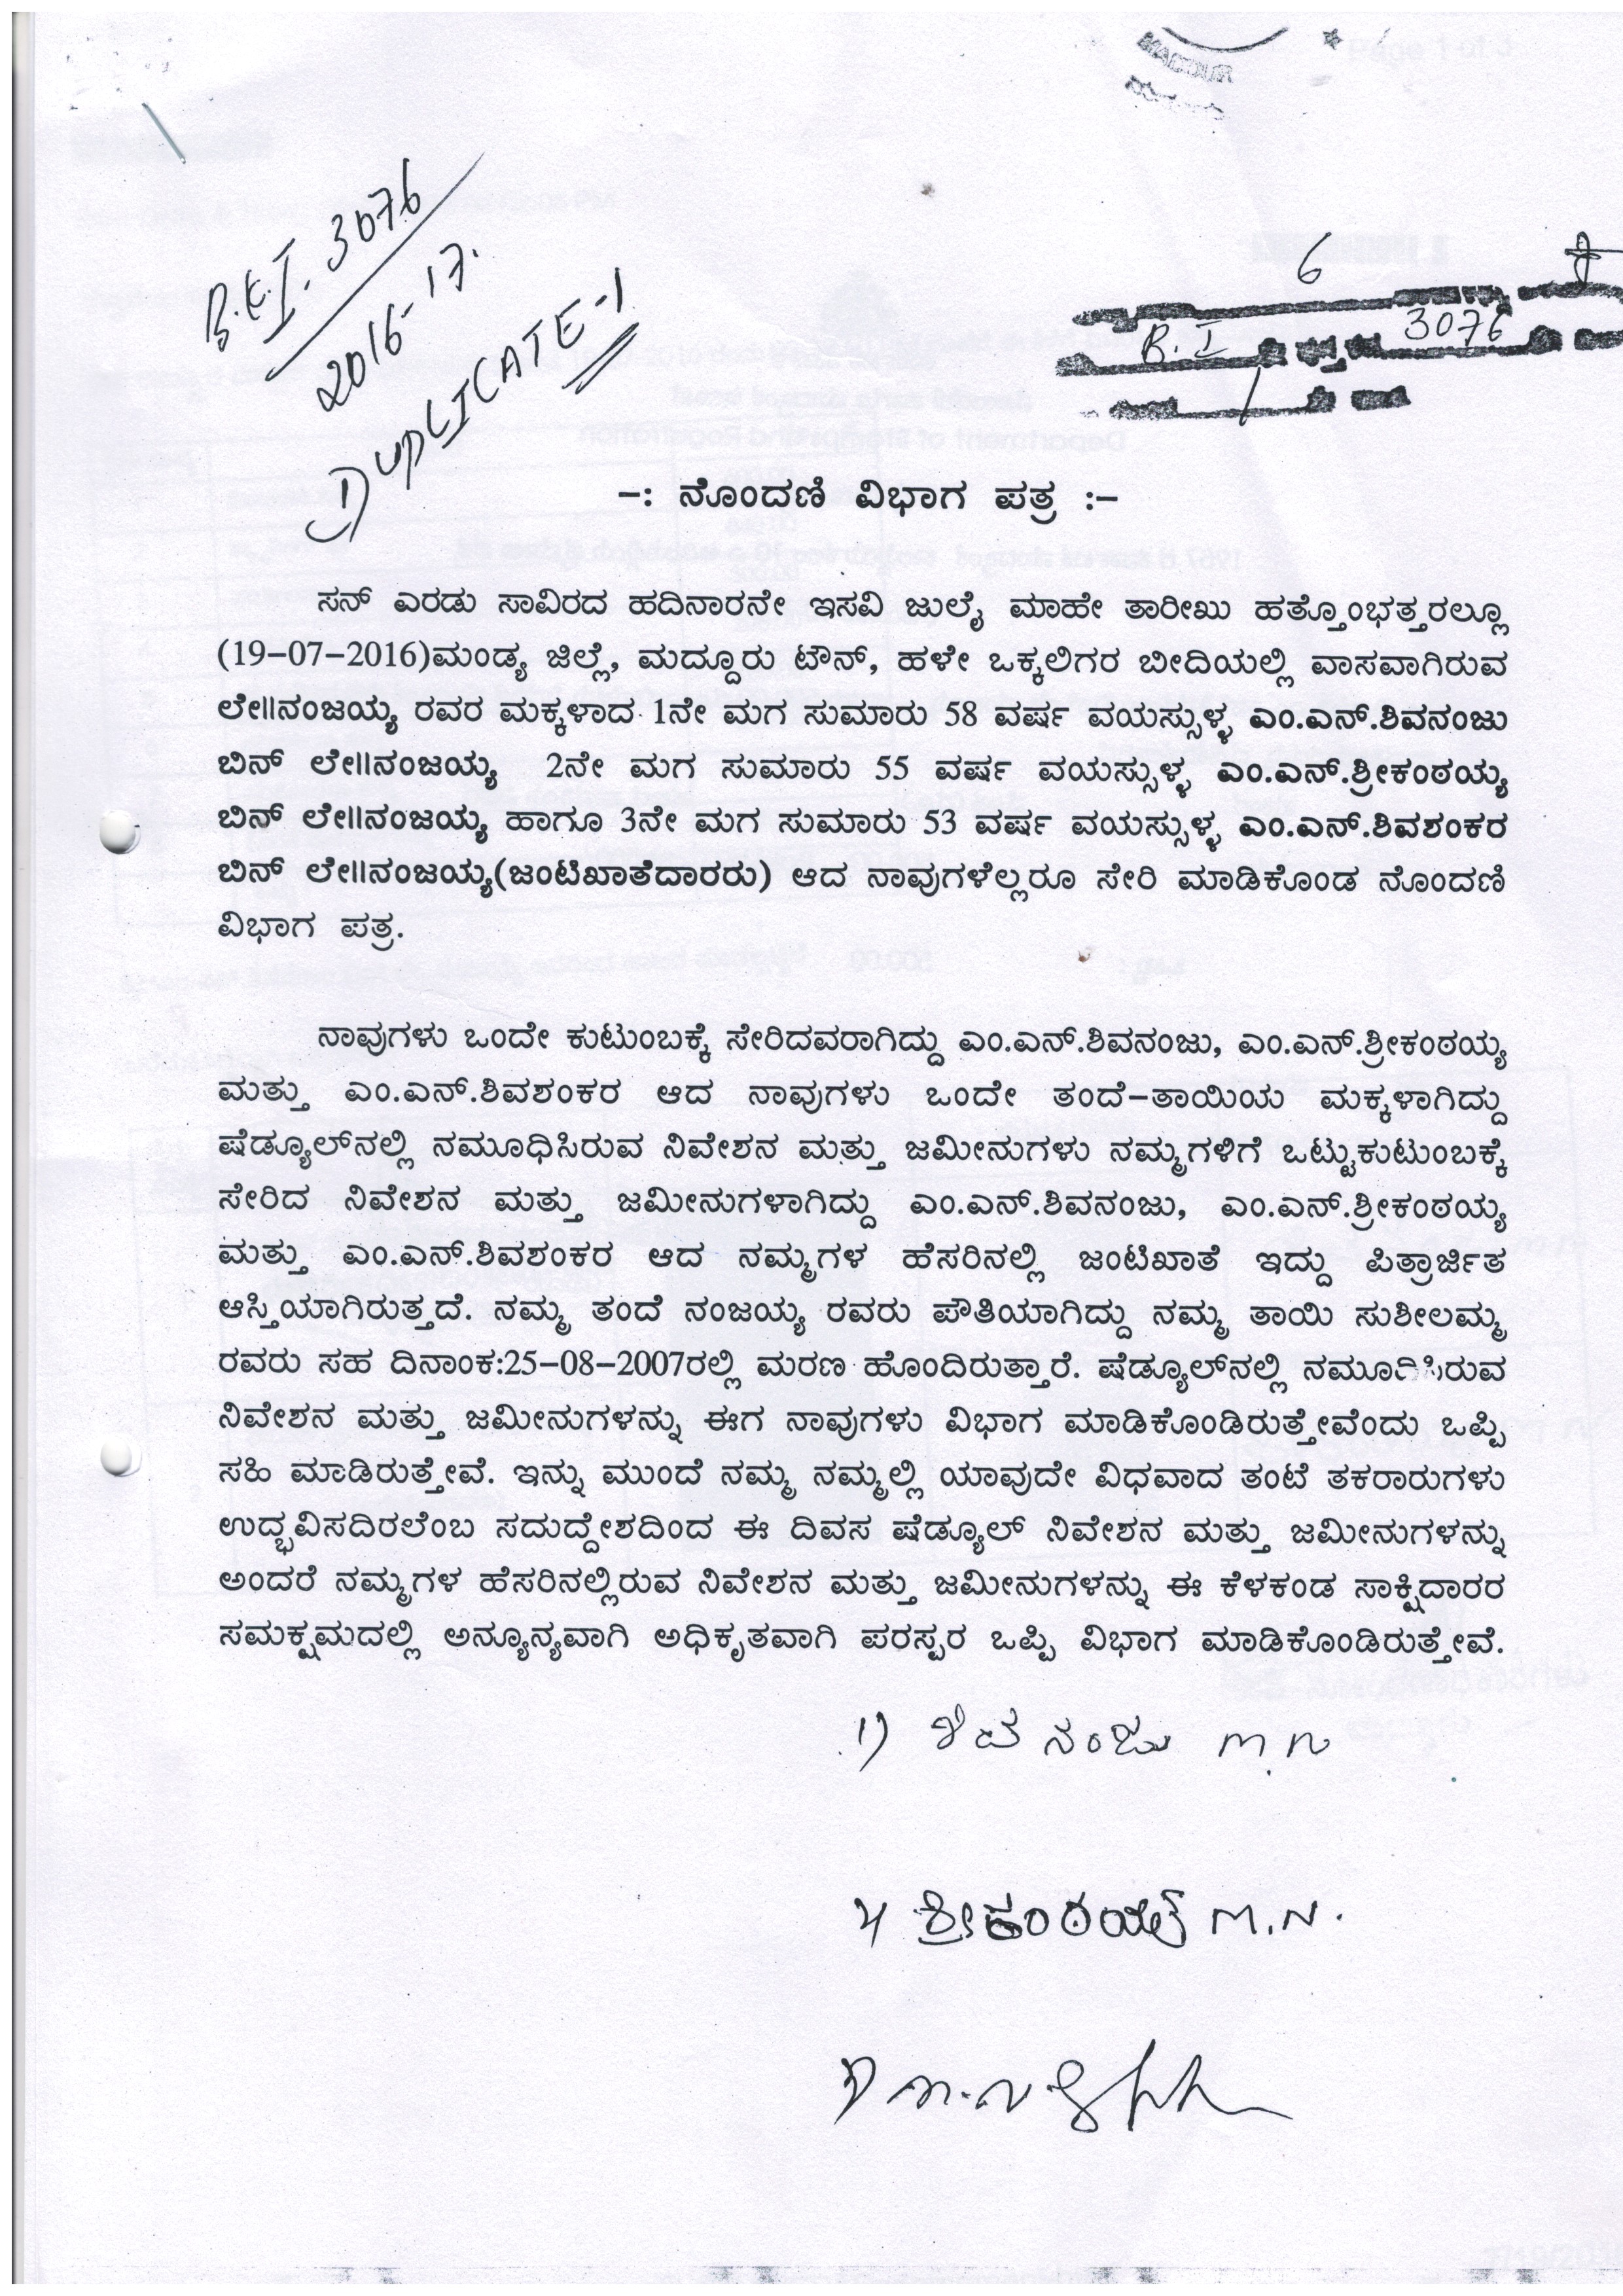 MADDUR
B.K.I. 3076
2016-17.
DUPLICATE-1
6
B. I 3076
1
-: ನೊಂದಣಿ ವಿಭಾಗ ಪತ್ರ :-
ಸನ್ ಎರಡು ಸಾವಿರದ ಹದಿನಾರನೇ ಇಸವಿ ಜುಲೈ ಮಾಹೇ ತಾರೀಖು ಹತ್ತೊಂಭತ್ತರಲ್ಲೂ
(19-07-2016)ಮಂಡ್ಯ ಜಿಲ್ಲೆ, ಮದ್ದೂರು ಟೌನ್, ಹಳೇ ಒಕ್ಕಲಿಗರ ಬೀದಿಯಲ್ಲಿ ವಾಸವಾಗಿರುವ
ಲೇ||ನಂಜಯ್ಯ ರವರ ಮಕ್ಕಳಾದ 1ನೇ ಮಗ ಸುಮಾರು 58 ವರ್ಷ ವಯಸ್ಸುಳ್ಳ ಎಂ.ಎನ್.ಶಿವನಂಜು
ಬಿನ್ ಲೇ||ನಂಜಯ್ಯ 2ನೇ ಮಗ ಸುಮಾರು 55 ವರ್ಷ ವಯಸ್ಸುಳ್ಳ ಎಂ.ಎನ್.ಶ್ರೀಕಂಠಯ್ಯ
ಬಿನ್ ಲೇ||ನಂಜಯ್ಯ ಹಾಗೂ 3ನೇ ಮಗ ಸುಮಾರು 53 ವರ್ಷ ವಯಸ್ಸುಳ್ಳ ಎಂ.ಎನ್.ಶಿವಶಂಕರ
ಬಿನ್ ಲೇ||ನಂಜಯ್ಯ(ಜಂಟಿಖಾತೆದಾರರು) ಆದ ನಾವುಗಳೆಲ್ಲರೂ ಸೇರಿ ಮಾಡಿಕೊಂಡ ನೊಂದಣಿ
ವಿಭಾಗ ಪತ್ರ.
ನಾವುಗಳು ಒಂದೇ ಕುಟುಂಬಕ್ಕೆ ಸೇರಿದವರಾಗಿದ್ದು ಎಂ.ಎನ್.ಶಿವನಂಜು, ಎಂ.ಎನ್.ಶ್ರೀಕಂಠಯ್ಯ
ಮತ್ತು ಎಂ.ಎನ್.ಶಿವಶಂಕರ ಆದ ನಾವುಗಳು ಒಂದೇ ತಂದೆ-ತಾಯಿಯ ಮಕ್ಕಳಾಗಿದ್ದು
ಷೆಡ್ಯೂಲ್‌ನಲ್ಲಿ ನಮೂಧಿಸಿರುವ ನಿವೇಶನ ಮತ್ತು ಜಮೀನುಗಳು ನಮ್ಮಗಳಿಗೆ ಒಟ್ಟುಕುಟುಂಬಕ್ಕೆ
ಸೇರಿದ ನಿವೇಶನ ಮತ್ತು ಜಮೀನುಗಳಾಗಿದ್ದು ಎಂ.ಎನ್.ಶಿವನಂಜು, ಎಂ.ಎನ್.ಶ್ರೀಕಂಠಯ್ಯ
ಮತ್ತು ಎಂ.ಎನ್.ಶಿವಶಂಕರ ಆದ ನಮ್ಮಗಳ ಹೆಸರಿನಲ್ಲಿ ಜಂಟಿಖಾತೆ ಇದ್ದು ಪಿತ್ರಾರ್ಜಿತ
ಆಸ್ತಿಯಾಗಿರುತ್ತದೆ. ನಮ್ಮ ತಂದೆ ನಂಜಯ್ಯ ರವರು ಪೌತಿಯಾಗಿದ್ದು ನಮ್ಮ ತಾಯಿ ಸುಶೀಲಮ್ಮ
ರವರು ಸಹ ದಿನಾಂಕ:25-08-2007ರಲ್ಲಿ ಮರಣ ಹೊಂದಿರುತ್ತಾರೆ. ಷೆಡ್ಯೂಲ್‌ನಲ್ಲಿ ನಮೂಧಿಸಿರುವ
ನಿವೇಶನ ಮತ್ತು ಜಮೀನುಗಳನ್ನು ಈಗ ನಾವುಗಳು ವಿಭಾಗ ಮಾಡಿಕೊಂಡಿರುತ್ತೇವೆಂದು ಒಪ್ಪಿ
ಸಹಿ ಮಾಡಿರುತ್ತೇವೆ. ಇನ್ನು ಮುಂದೆ ನಮ್ಮ ನಮ್ಮಲ್ಲಿ ಯಾವುದೇ ವಿಧವಾದ ತಂಟೆ ತಕರಾರುಗಳು
ಉದ್ಭವಿಸದಿರಲೆಂಬ ಸದುದ್ದೇಶದಿಂದ ಈ ದಿವಸ ಷೆಡ್ಯೂಲ್ ನಿವೇಶನ ಮತ್ತು ಜಮೀನುಗಳನ್ನು
ಅಂದರೆ ನಮ್ಮಗಳ ಹೆಸರಿನಲ್ಲಿರುವ ನಿವೇಶನ ಮತ್ತು ಜಮೀನುಗಳನ್ನು ಈ ಕೆಳಕಂಡ ಸಾಕ್ಷಿದಾರರ
ಸಮಕ್ಷಮದಲ್ಲಿ ಅನ್ಯೂನ್ಯವಾಗಿ ಅಧಿಕೃತವಾಗಿ ಪರಸ್ಪರ ಒಪ್ಪಿ ವಿಭಾಗ ಮಾಡಿಕೊಂಡಿರುತ್ತೇವೆ.
1) ಶಿವನಂಜು M.N
2) ಶ್ರೀಕಂಠಯ್ಯ M.N.
3) M.N